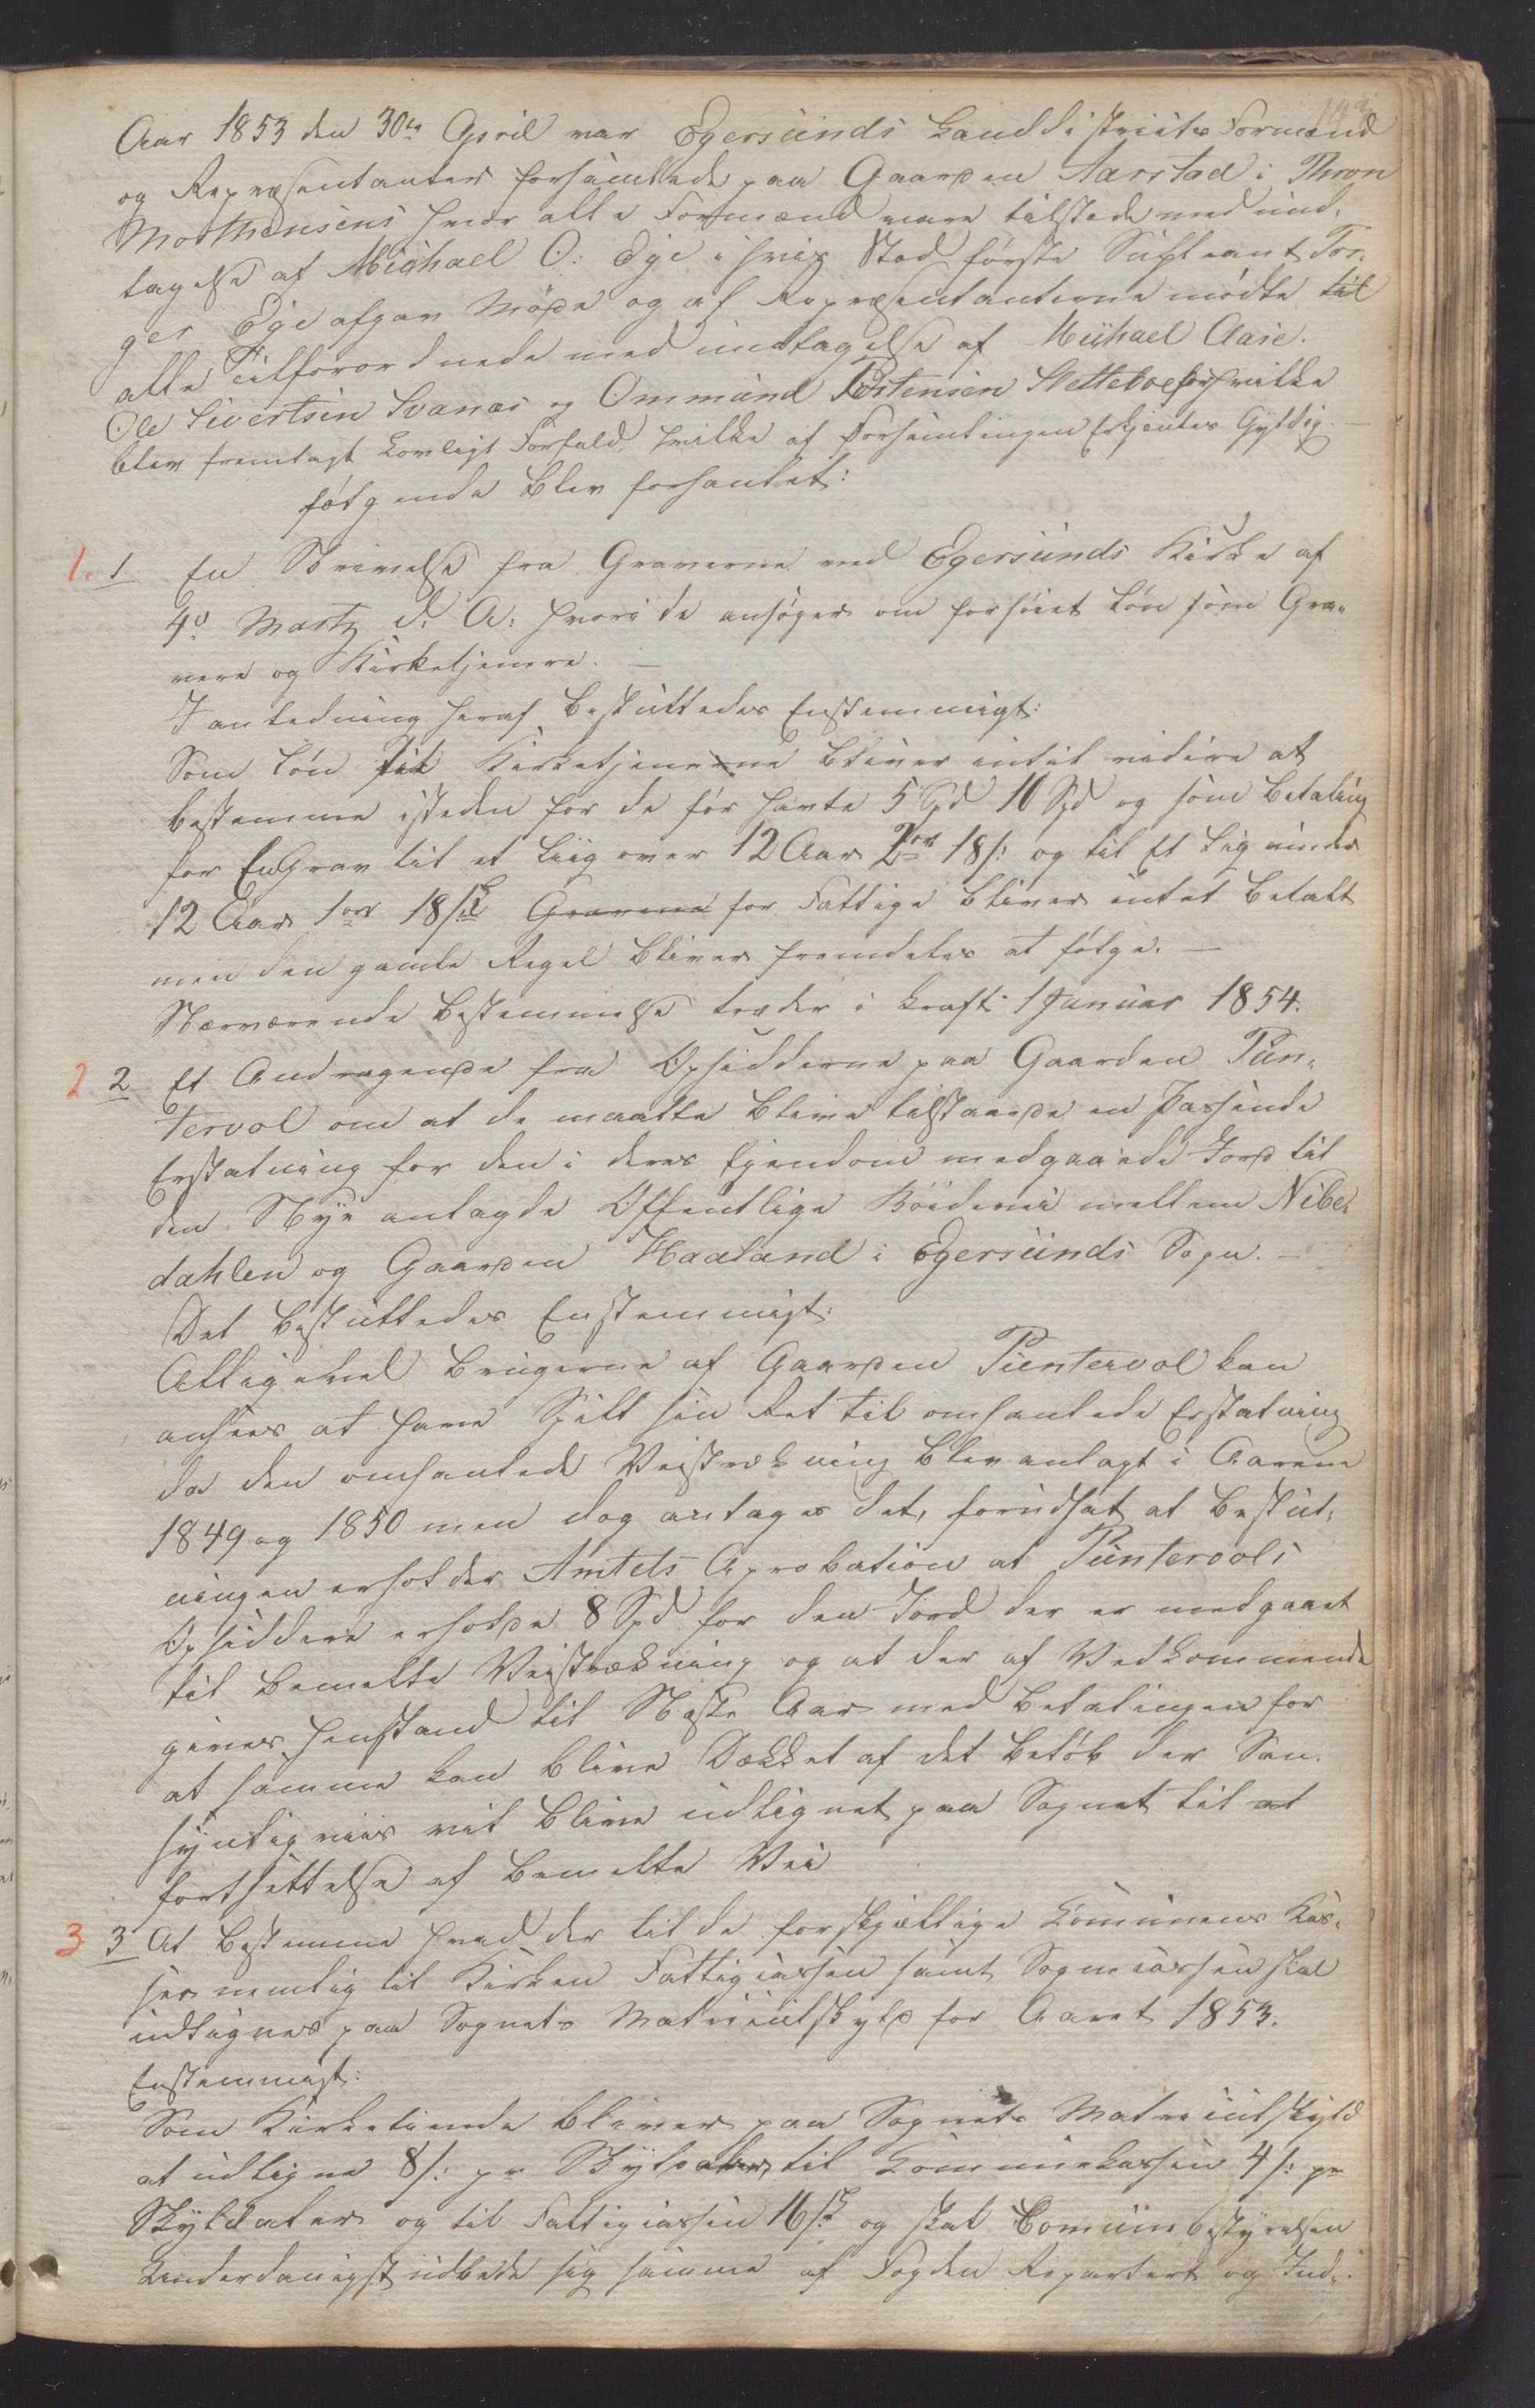 Aar 1853 den 30te April var Egersunds Landdistricts Formænd
og Repræsentanter forsamlede paa Gaarden Aarstad i Thron
Morthensens hvor alle Formænd vare tilstede med und-
tagelse af Michael O: Ege i hvis Stad første Supleant Tor-
ger Ege afgav Møde og af Repræsentanterne mødte til
alle Tilforordnede med undtagelse af Michael Aase.
Ole Sivertsen Svanæs og Ommund Tostensen Sletteboe for hvilke
blev fremlagt Lovligt Forfald, hvilke af Forsamlingen Erkjentes Gyldig.
følgende blev forhanlet:
1. 1 En Skrivelse fra Graverne ved Egersunds Kirke af
4de Martz d. A: hvori de ansøger om forhøiet Løn som Gra-
vere og Kirketjenere. —
I anledning heraf besluttedes Enstemmigt:
Som Løn til Kirketjenerne bliver intil videre at
bestemme isteden for de før havte 5 Spd 10 Spd og som Betaling
for En Grav til et Liig over 12 Aar 2 ort 18 s: og til Et Lig under
12 Aar 1 ort 18 sk Graverne for Fattige bliver intet Betalt
men den gamle Regel bliver fremdeles at følge. —
Nærværende Bestemmelse træder i kraft 1 Januar 1854.
2. 2 Et Andragende fra Opsidderne paa Gaarden Pun-
tervol om at de maatte blive tilstaaede en Passende
Erstatning for den i deres Ejendom medgaaede Jord til
den Nye anlagde Offentlige Bøidevei mellem Nibe-
dahlen og Gaarden Haaland i Egersunds Sogn. —
Det besluttedes Enstemmigt:
Alligevel Brugerne af Gaarden Puntervol kan
ansees at have Spilt sin Ret til omhanlede Erstatning
da den omhanlede Veistrækning blev anlagt i Aarene
1849 og 1850 men dog antages det, forudsat at Beslut-
ningen erholder Amtets Aprobation at Puntervols
Opsiddere erholde 8 Spd for den Jord der er medgaaet
til bemelte Veistrækning og at der af Vedkommende
gives Henstand til Næste Aar med Betalingen for
at samme kan blive Dækket af det Beløb der San-
synligviis vil blive udlignet paa Sognet til at
fortsættelse af bemelte Vei
3 3 At Bestemme hvad der til de forskjællige Communens Kas-
ser nemlig til Kirken Fattigcassen samt Sognecassen skal
udlignes paa Sognets Matriculskyld for Aaret 1853.
Enstemmigt:
Som Kirketiende bliver paa Sognets Matriculskyld
at udligne 8 s: pr Skyldaler, til Communekassen 4 s: pr
Skyldaler og til Fattigcassen 16 sk og skal Comunebestyrelsen
Underdanigst udbede sig samme af Fogden Repartert og Ind-